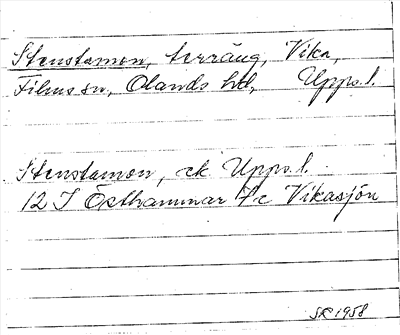 Stenstamon, terräng, Vika,
Films sn, Olands hd, Upps.l.
Stenstamon, ek Upps.l.
12 I Östhammar 7c Vikasjön
1958